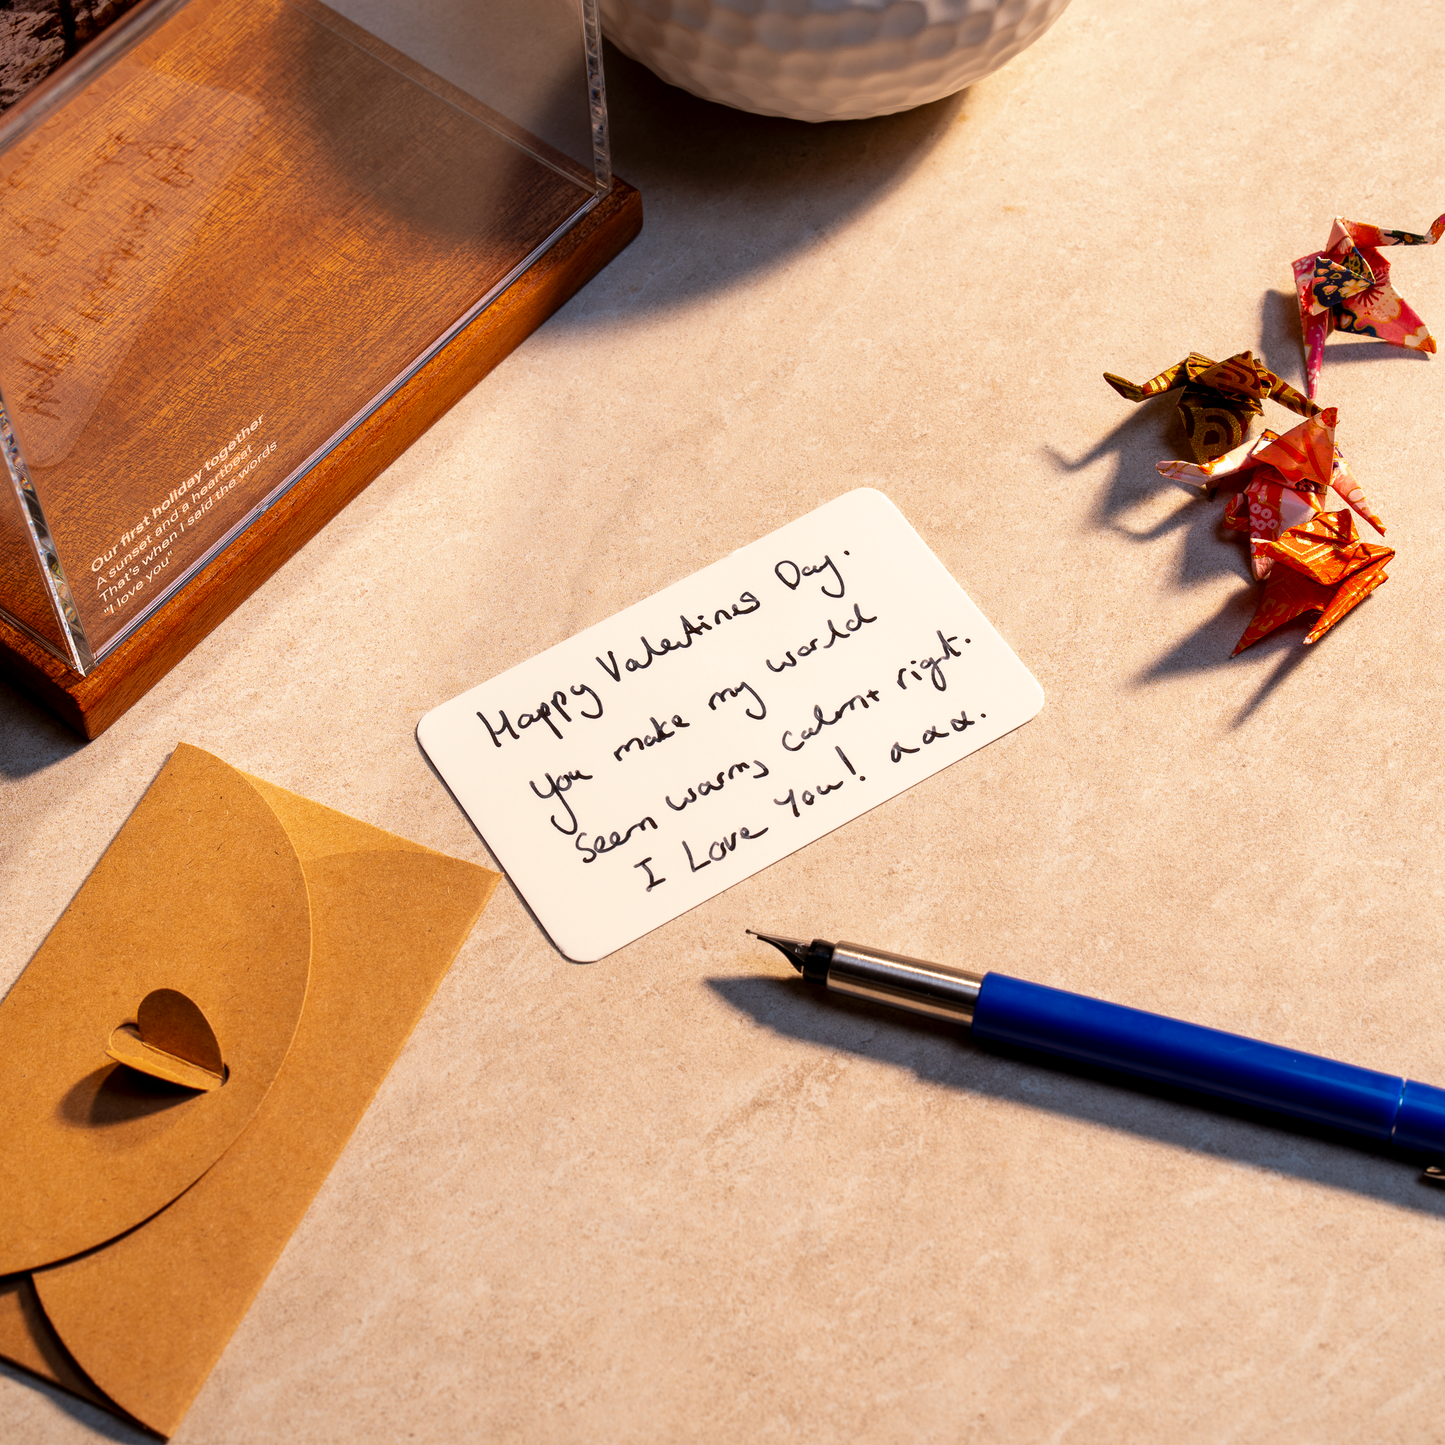 Our first holiday together
A sunset and a heartbeat
That's when I said the words
"I love you"
Happy Valentines Day.
You make my world
Seem warm, calm + right.
I Love You! xxx.